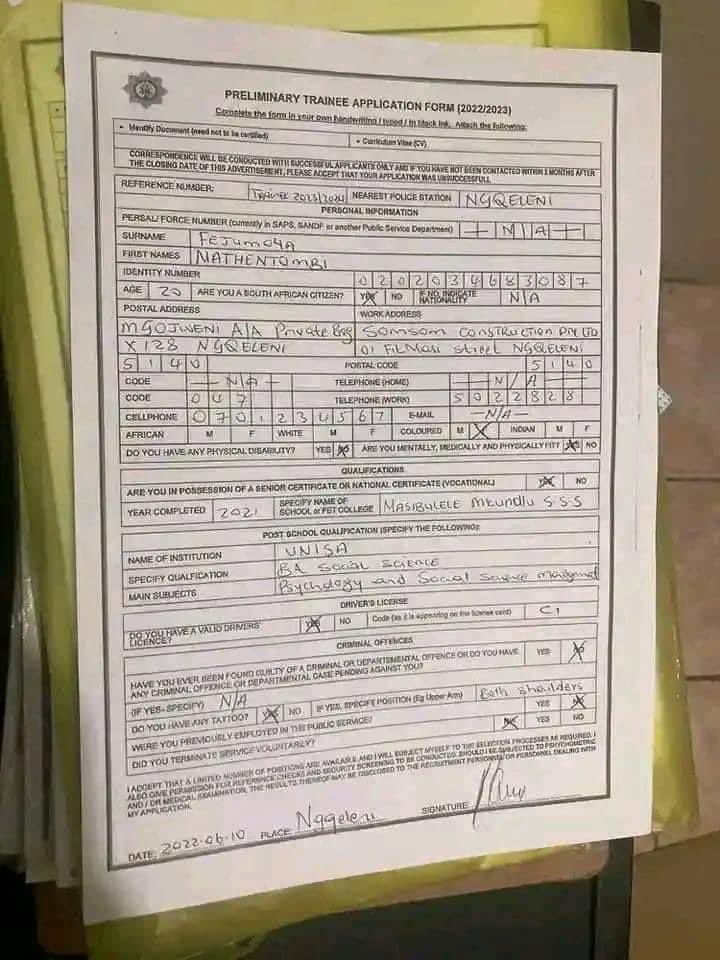 PRELIMINARY TRAINEE APPLICATION FORM (2022/2023)
Complete the form in your own handwriting / typed / in black ink. Attach the following:
• Identify Document (need not to be certified) • Curriculum Vitae (CV)
CORRESPONDENCE WILL BE CONDUCTED WITH SUCCESSFUL APPLICANTS ONLY AND IF YOU HAVE NOT BEEN CONTACTED WITHIN 3 MONTHS AFTER
THE CLOSING DATE OF THIS ADVERTISEMENT, PLEASE ACCEPT THAT YOUR APPLICATION WAS UNSUCCESSFULL
REFERENCE NUMBER: Trainee 2023/2024 NEAREST POLICE STATION NGQELENI
PERSONAL INFORMATION
PERSAL/ FORCE NUMBER (currently in SAPS, SANDF or another Public Service Department) N/A
SURNAME FEJUMOYA
FIRST NAMES NATHENTOMBI
IDENTITY NUMBER 0202034683087
AGE 20 ARE YOU A SOUTH AFRICAN CITIZEN? YES NO IF NO, INDICATE NATIONALITY N/A
POSTAL ADDRESS WORK ADDRESS
MGOJWENI A/A Private Bag SOMSOM CONSTRUCTION PTY LTD
X128 NGQELENI 01 street NGQELENI
5140 POSTAL CODE 5140
CODE N/A TELEPHONE (HOME) N/A
CODE 047 TELEPHONE (WORK) 5022828
CELLPHONE 0701234567 E-MAIL N/A
AFRICAN M F WHITE M F COLOURED M INDIAN M F
DO YOU HAVE ANY PHYSICAL DISABILITY? YES NO ARE YOU MENTALLY, MEDICALLY AND PHYSICALLY FIT? YES NO
QUALIFICATIONS
ARE YOU IN POSSESSION OF A SENIOR CERTIFICATE OR NATIONAL CERTIFICATE (VOCATIONAL) YES NO
YEAR COMPLETED 2021 SPECIFY NAME OF SCHOOL or FET COLLEGE MASIBULELE Mkundlu S.S.S
POST SCHOOL QUALIFICATION (SPECIFY THE FOLLOWING):
NAME OF INSTITUTION UNISA
SPECIFY QUALFICATION BA SOCIAL SCIENCE
MAIN SUBJECTS Psychology and Social Science Management
DRIVER'S LICENSE
DO YOU HAVE A VALID DRIVERS' LICENCE? YES NO Code (as it is appearing on the license card) C1
CRIMINAL OFFENCES
HAVE YOU EVER BEEN FOUND GUILTY OF A CRIMINAL OR DEPARTEMENTAL OFFENCE OR DO YOU HAVE
ANY CRIMINAL OFFENCE OR DEPARTMENTAL CASE PENDING AGAINST YOU? YES
(IF YES- SPECIFY) N/A
DO YOU HAVE ANY TATTOO? YES NO IF YES, SPECIFY POSITION (Eg Upper Arm) Both shoulders
WERE YOU PREVIOUSLY EMPLOYED IN THE PUBLIC SERVICE? YES NO
DID YOU TERMINATE SERVICE VOLUNTARILY? YES NO
I ACCEPT THAT A LIMITED NUMBER OF POSITIONS ARE AVAILABLE AND I WILL SUBJECT MYSELF TO THE SELECTION PROCESSES AS REQUIRED. I
ALSO GIVE PERMISSION FOR REFERENCE CHECKS AND SECURITY SCREENING TO BE CONDUCTED. SHOULD I BE SUBJECTED TO PSHYCTOMETRIC
AND / OR MEDICAL EXAMINATION, THE RESULTS THEREOF MAY BE DISCLOSED TO THE RECRUITMENT PERSONNEL/ OR PERSONNEL DEALING WITH
MY APPLICATION.
DATE: 2022-06-10 PLACE: Nggeleni SIGNATURE: